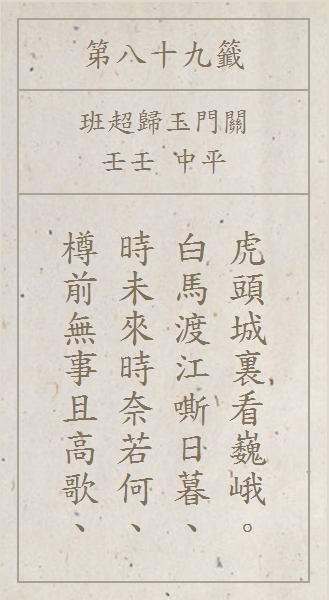 第八十九籤
班超歸玉門關
壬壬 中平
虎頭城裏看巍峨。
白馬渡江嘶日暮、
時未來時奈若何、
樽前無事且高歌、